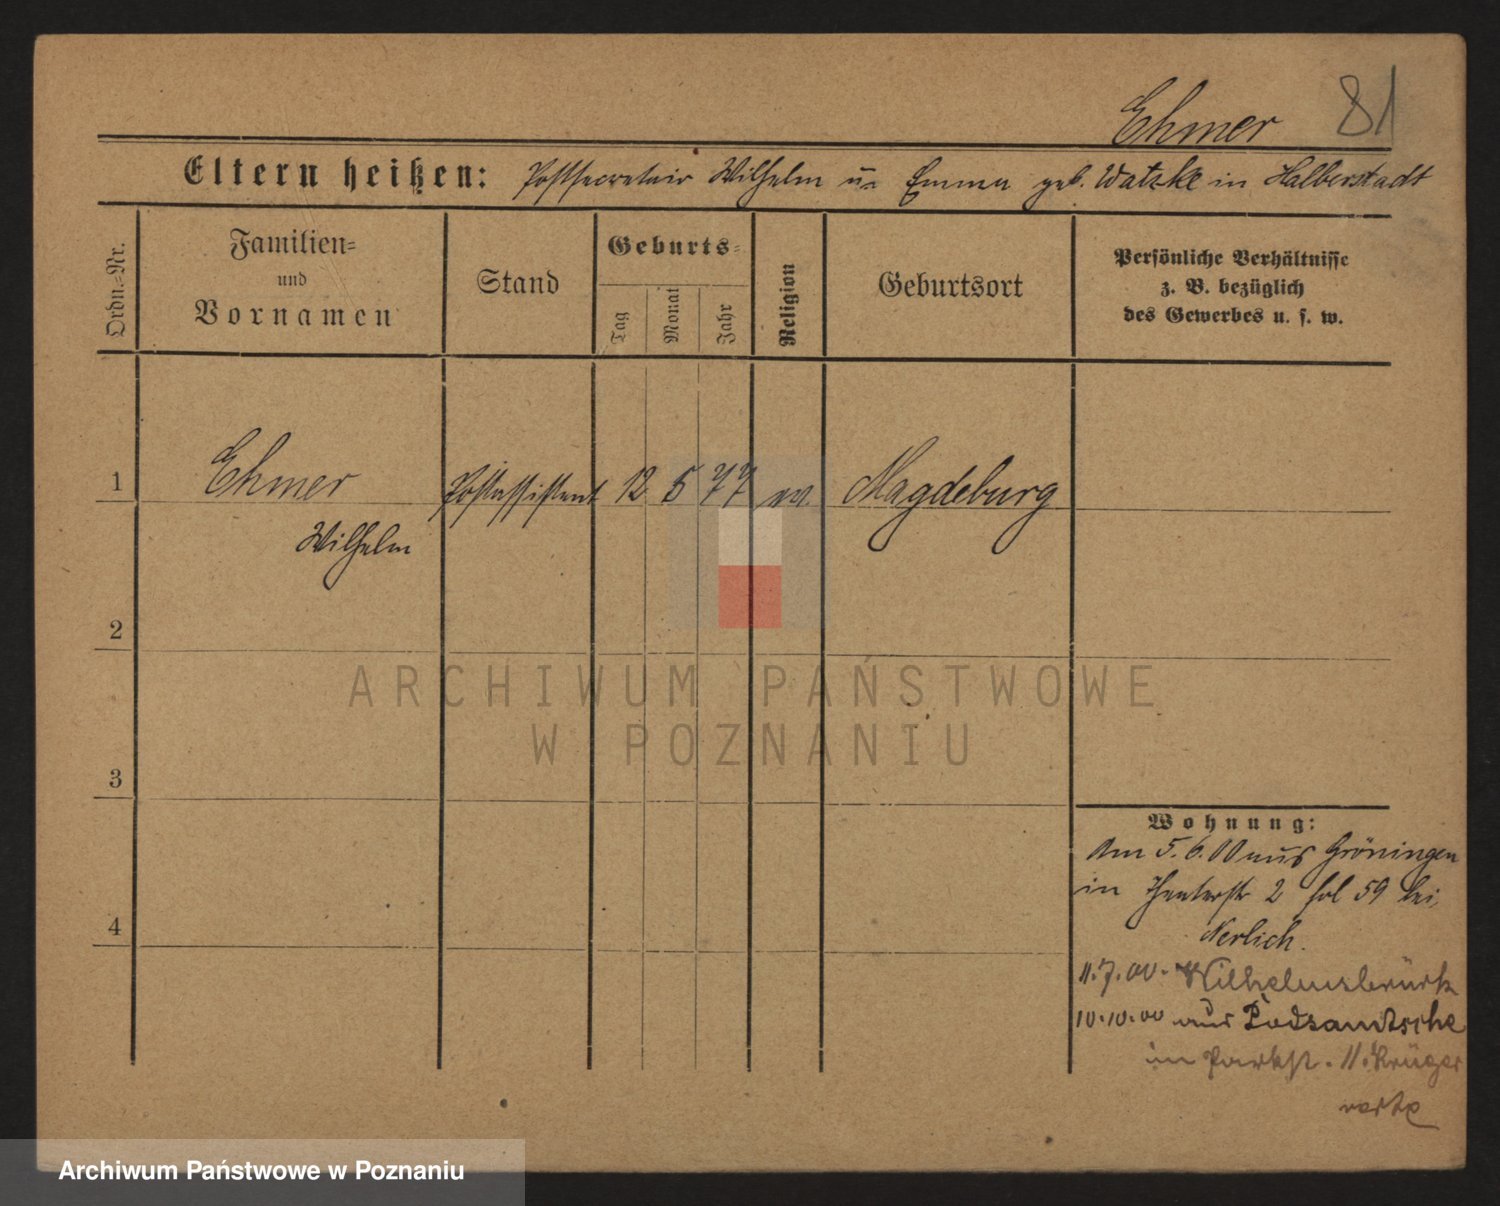 Ehmer 81
Eltern heißen: Postsecretair Wilhelm u. Emma geb. Watzke in Halberstadt
Ordn.-Nr.
Familien-
und
Vornamen
Stand
Geburts-
Tag
Monat
Jahr
Religion
Geburtsort
Persönliche Verhältnisse
z. B. bezüglich
des Gewerbes u. s. w.
1 Ehmer Postassistent 12 5 77 ev. Magdeburg
Wilhelm
2
3
4
Wohnung:
Am 5.6.00 aus Gröningen
in Theaterstr 2 hol 59 bei
Nerlich.
11.7.00. Wilhelmsbrück
10.10.00 aus Podsamtsche
in Parkst. 11. Krüger
ARCHIWUM PAŃSTWOWE
W POZNANIU
Archiwum Państwowe w Poznaniu